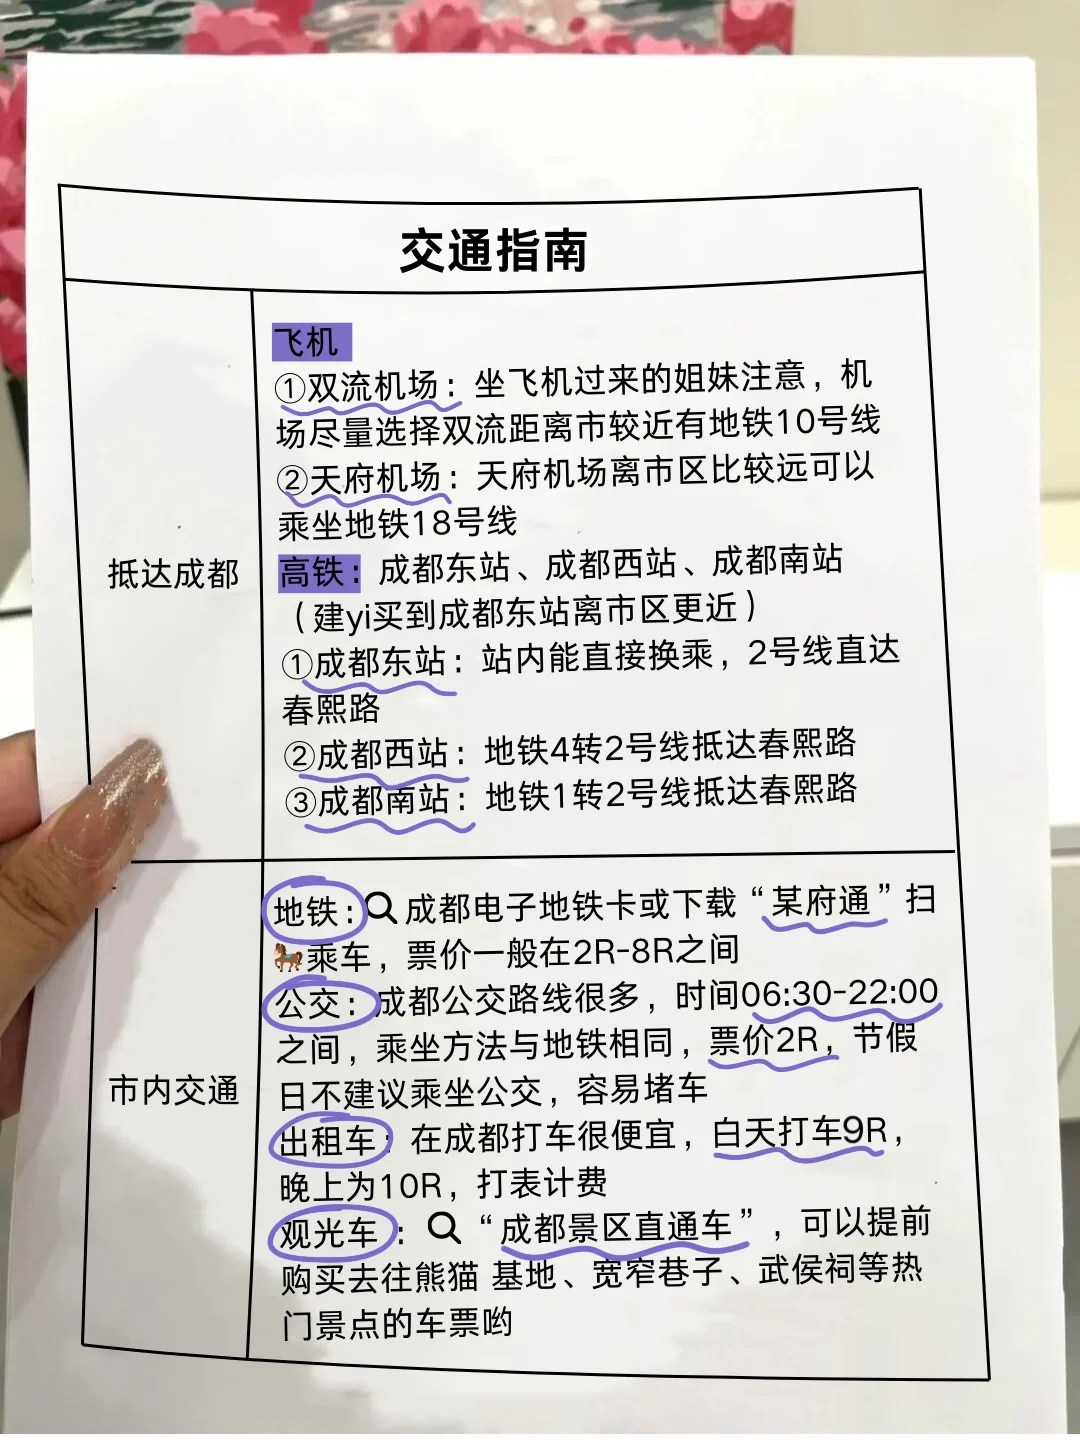 交通指南
抵达成都
飞机
①双流机场：坐飞机过来的姐妹注意，机
场尽量选择双流距离市较近有地铁10号线
②天府机场：天府机场离市区比较远可以
乘坐地铁18号线
高铁：成都东站、成都西站、成都南站
（建yi买到成都东站离市区更近）
①成都东站：站内能直接换乘，2号线直达
春熙路
②成都西站：地铁4转2号线抵达春熙路
③成都南站：地铁1转2号线抵达春熙路
市内交通
地铁：🔍成都电子地铁卡或下载“某府通”扫
🐎乘车，票价一般在2R-8R之间
公交：成都公交路线很多，时间06:30-22:00
之间，乘坐方法与地铁相同，票价2R，节假
日不建议乘坐公交，容易堵车
出租车：在成都打车很便宜，白天打车9R，
晚上为10R，打表计费
观光车：🔍“成都景区直通车”，可以提前
购买去往熊猫 基地、宽窄巷子、武侯祠等热
门景点的车票哟